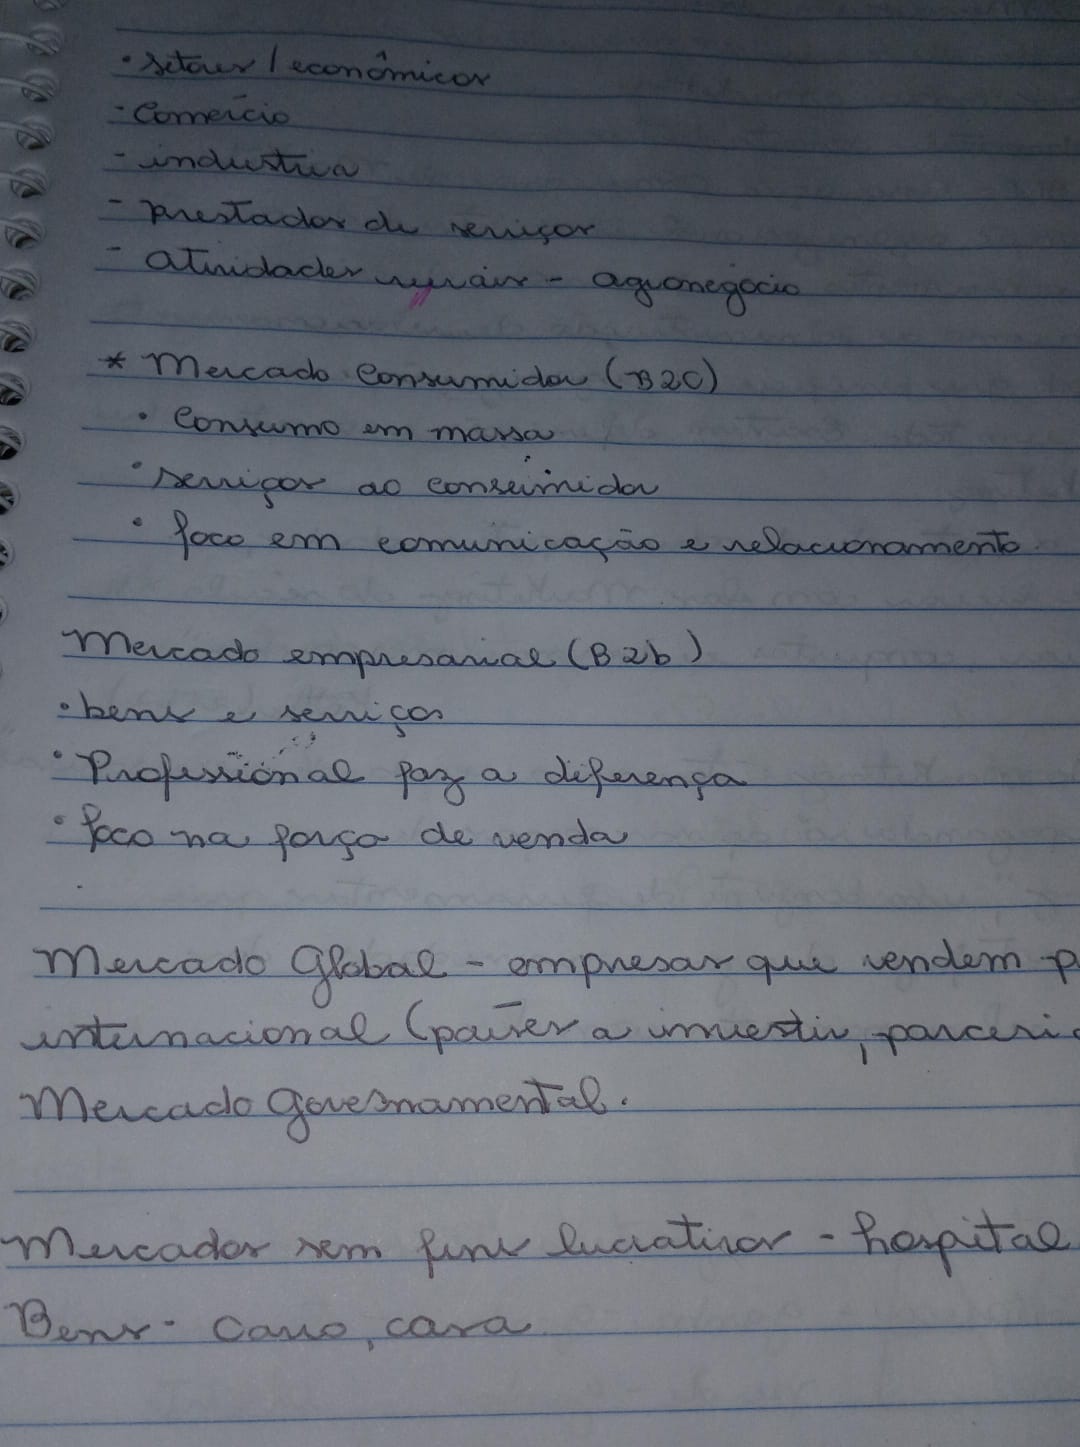 • setores / econômicos
- Comércio
- industria
- prestador de serviços
- atividades rurais - agronegócio
* Mercado Consumidor (B2C)
• Consumo em massa
• serviços ao consumidor
• foco em comunicação e relacionamento
Mercado empresarial (B2b)
• bens e serviços
• Profissional faz a diferença
• foco na força de venda
Mercado Global - empresas que vendem p
internacional (países a investir, parceri
Mercado Governamental.
Mercados sem fins lucrativos - hospital
Bens - carro, casa